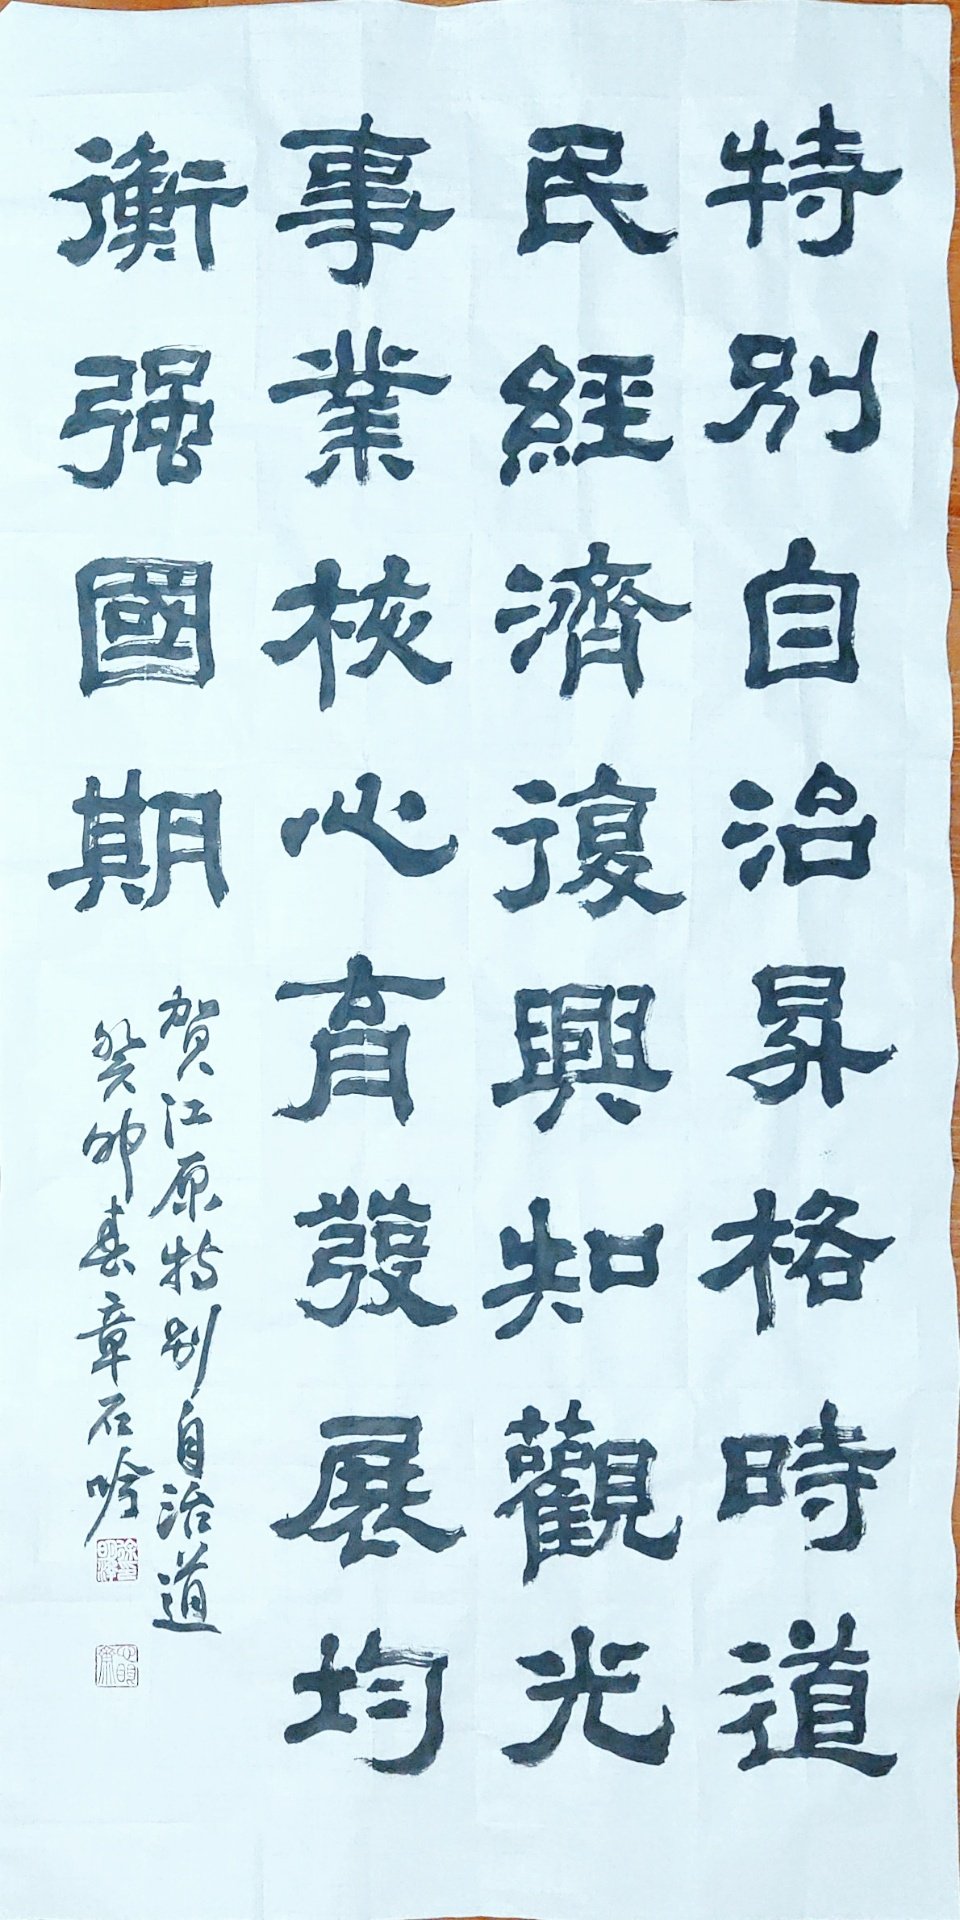 特別自治昇格時道
民經濟復興知觀光
事業核心育發展均
衡强國期
賀江原特别自治道
癸卯春章石吟